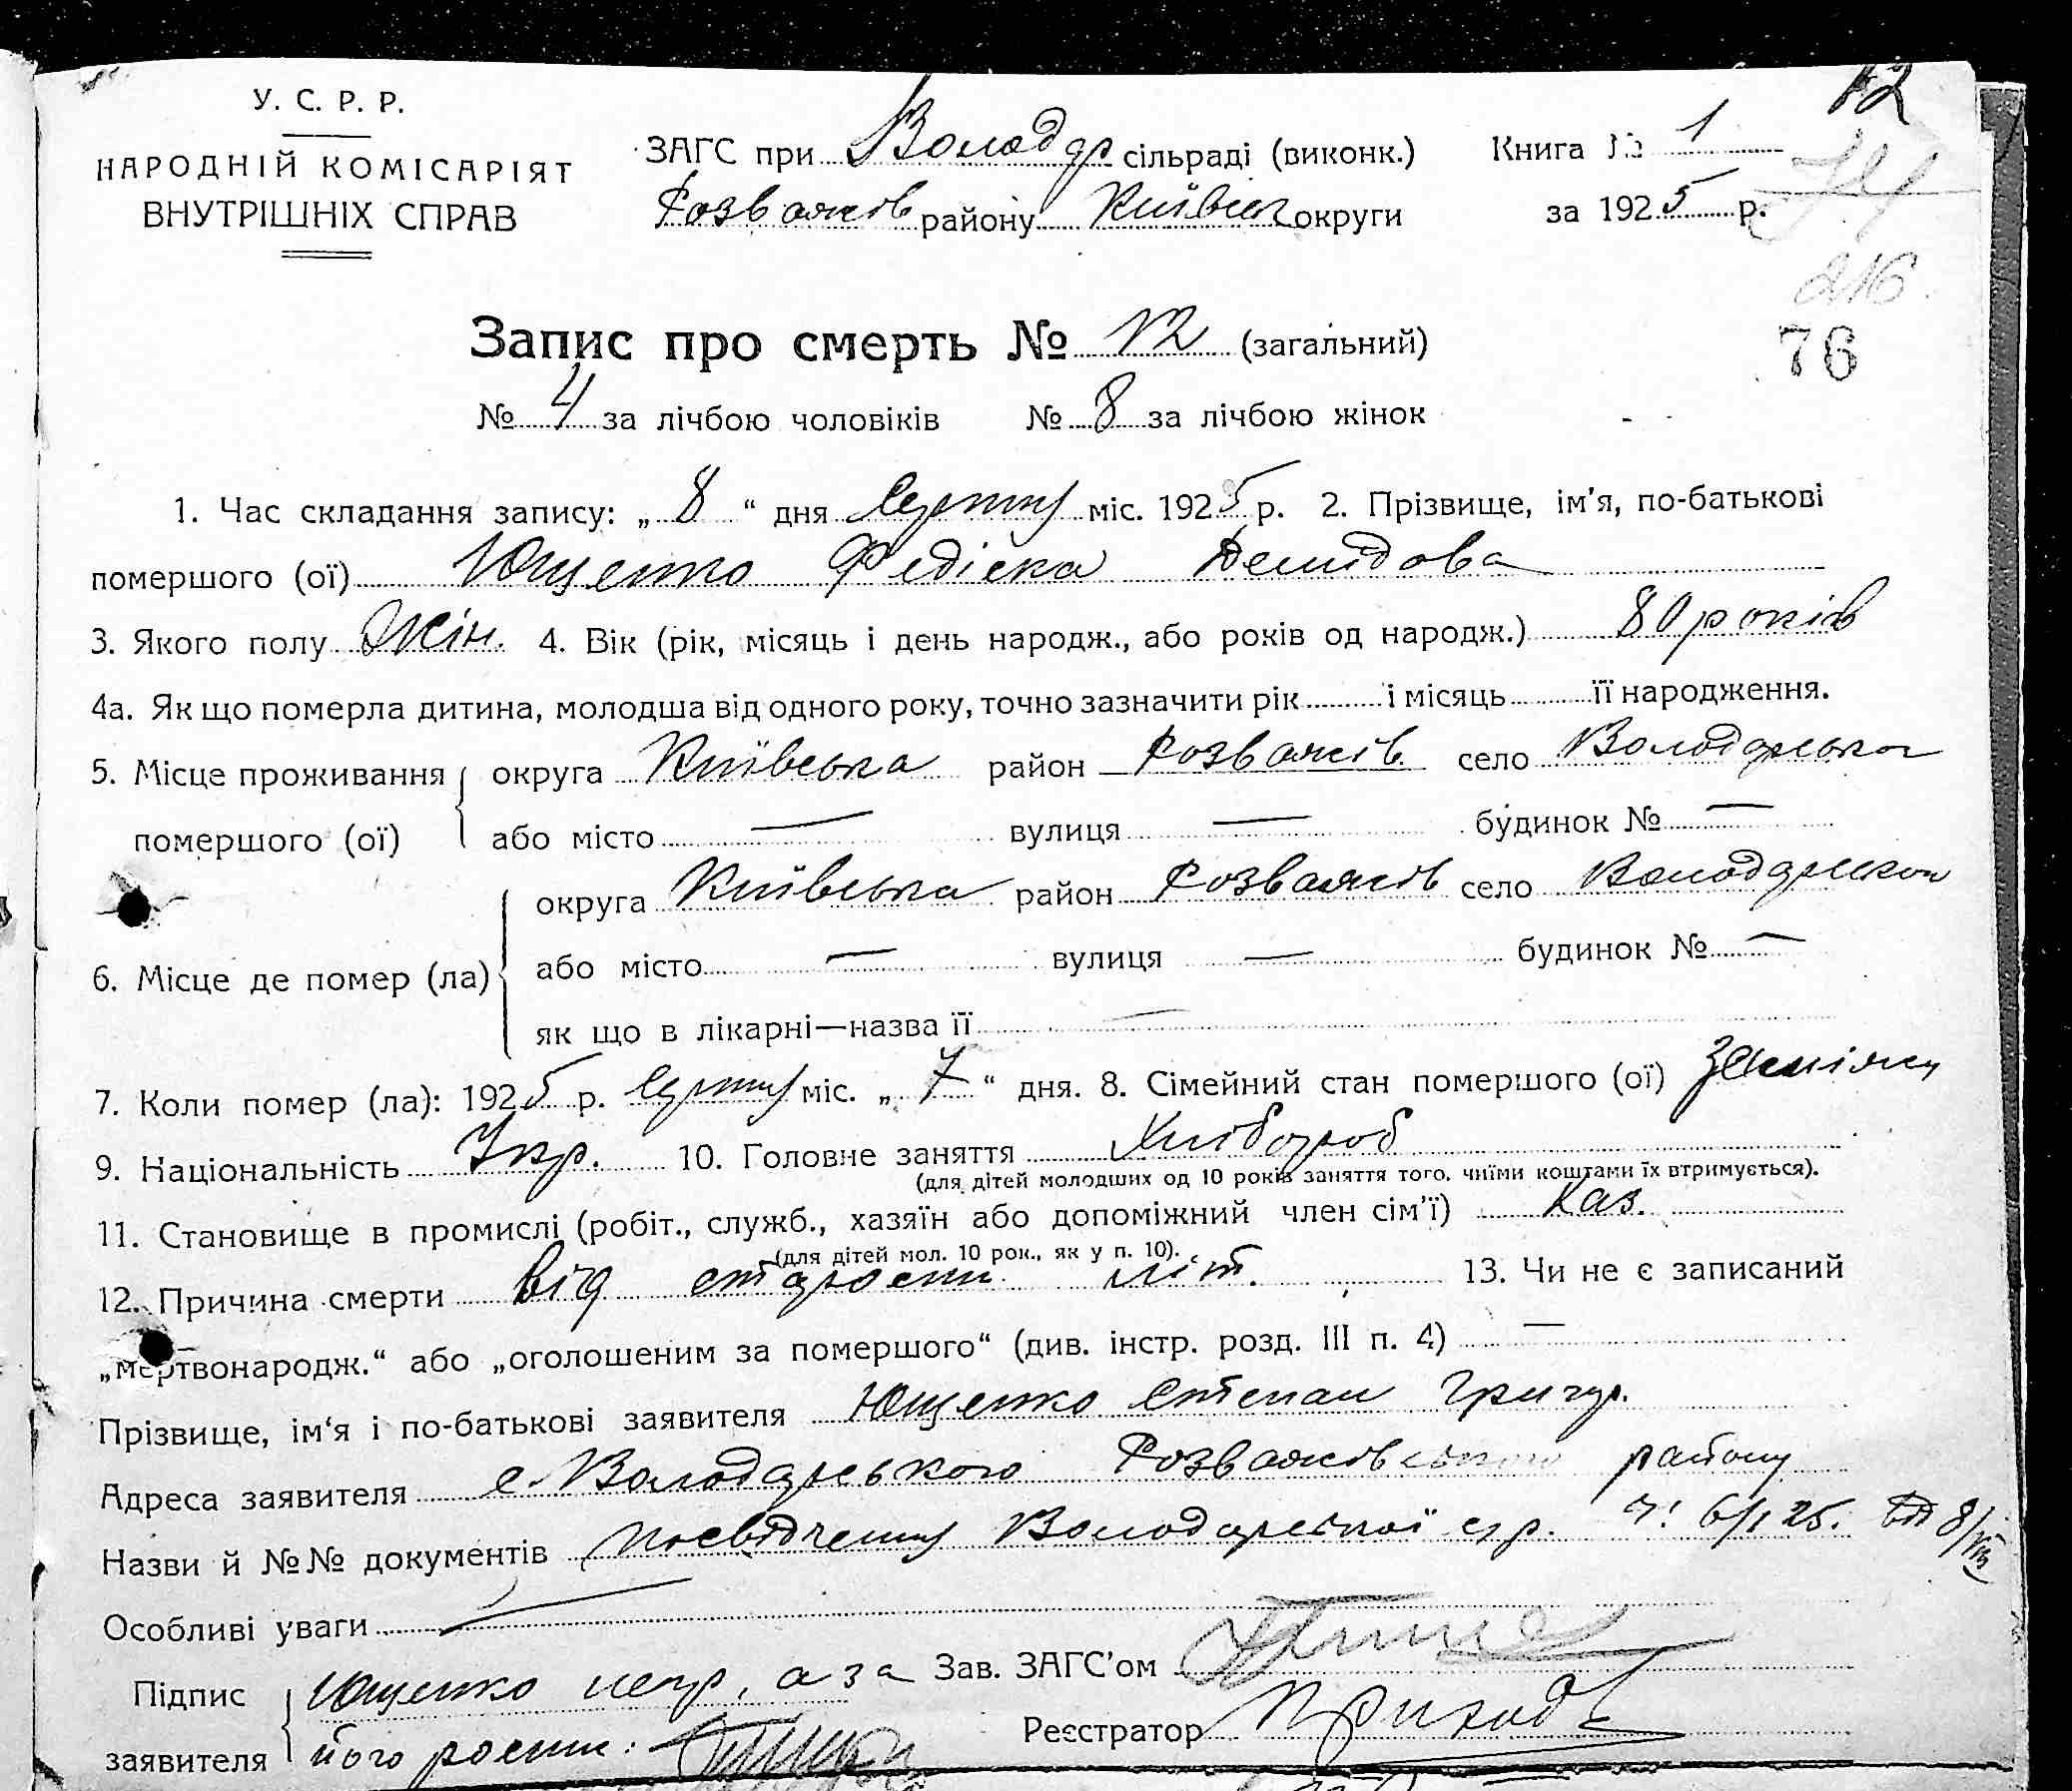 12
У. С. Р. Р.
НАРОДНІЙ КОМІСАРІЯТ
ВНУТРІШНІХ СПРАВ
ЗАГС при Володар сільраді (виконк.) Книга № 1
Розважів району Київськ округи за 1925 р.
216
76
Запис про смерть № 12 (загальний)
№ 4 за лічбою чоловіків № 8 за лічбою жінок
1. Час складання запису: „ 8 “ дня Серпня міс. 1925 р. 2. Прізвище, ім'я, по-батькові
помершого (ої) Ющенко Федіска Демидова
3. Якого полу Жін. 4. Вік (рік, місяць і день народж., або років од народж.) 80 років
4а. Як що померла дитина, молодша від одного року, точно зазначити рік і місяць її народження.
5. Місце проживання помершого (ої) округа Київська район Розважів село Володарська
або місто — вулиця — будинок № —
6. Місце де помер (ла) округа Київська район Розважів село Володарська
або місто — вулиця — будинок № —
як що в лікарні—назва її —
7. Коли помер (ла): 1925 р. Серпня міс. „ 7 “ дня. 8. Сімейний стан помершого (ої)
9. Національність Укр. 10. Головне заняття Хлібороб
(для дітей молодших од 10 років заняття того, чиїми коштами їх втримується).
11. Становище в промислі (робіт., служб., хазяїн або допоміжний член сім'ї) Хаз.
(для дітей мол. 10 рок., як у п. 10).
12. Причина смерти від старости літ. 13. Чи не є записаний
„мертвонародж.“ або „оголошеним за помершого“ (див. інстр. розд. III п. 4) —
Прізвище, ім'я і по-батькові заявителя Ющенко Степан Григор.
Адреса заявителя с. Володарського Розважівського району
Назви й №№ документів Посвідчення Володарської с/р. 25. від 8/VIII
Особливі уваги —
Підпис заявителя Ющенко непр, а за Зав. ЗАГС'ом
його росписи: Реєстратор Приходь